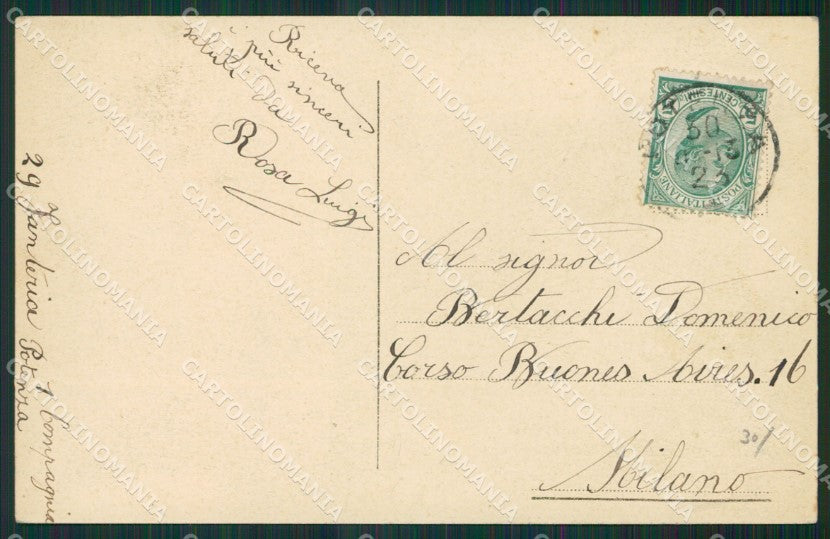 Riceva
i più sinceri
saluti da
Rosa Luigi
29 Fanteria 1 Compagnia
Potenza
POSTE ITALIANE
CENTESIMI
Al signor
Bertacchi Domenico
Corso Buones Aires. 16
Milano
30/
CARTOLINOMANIA